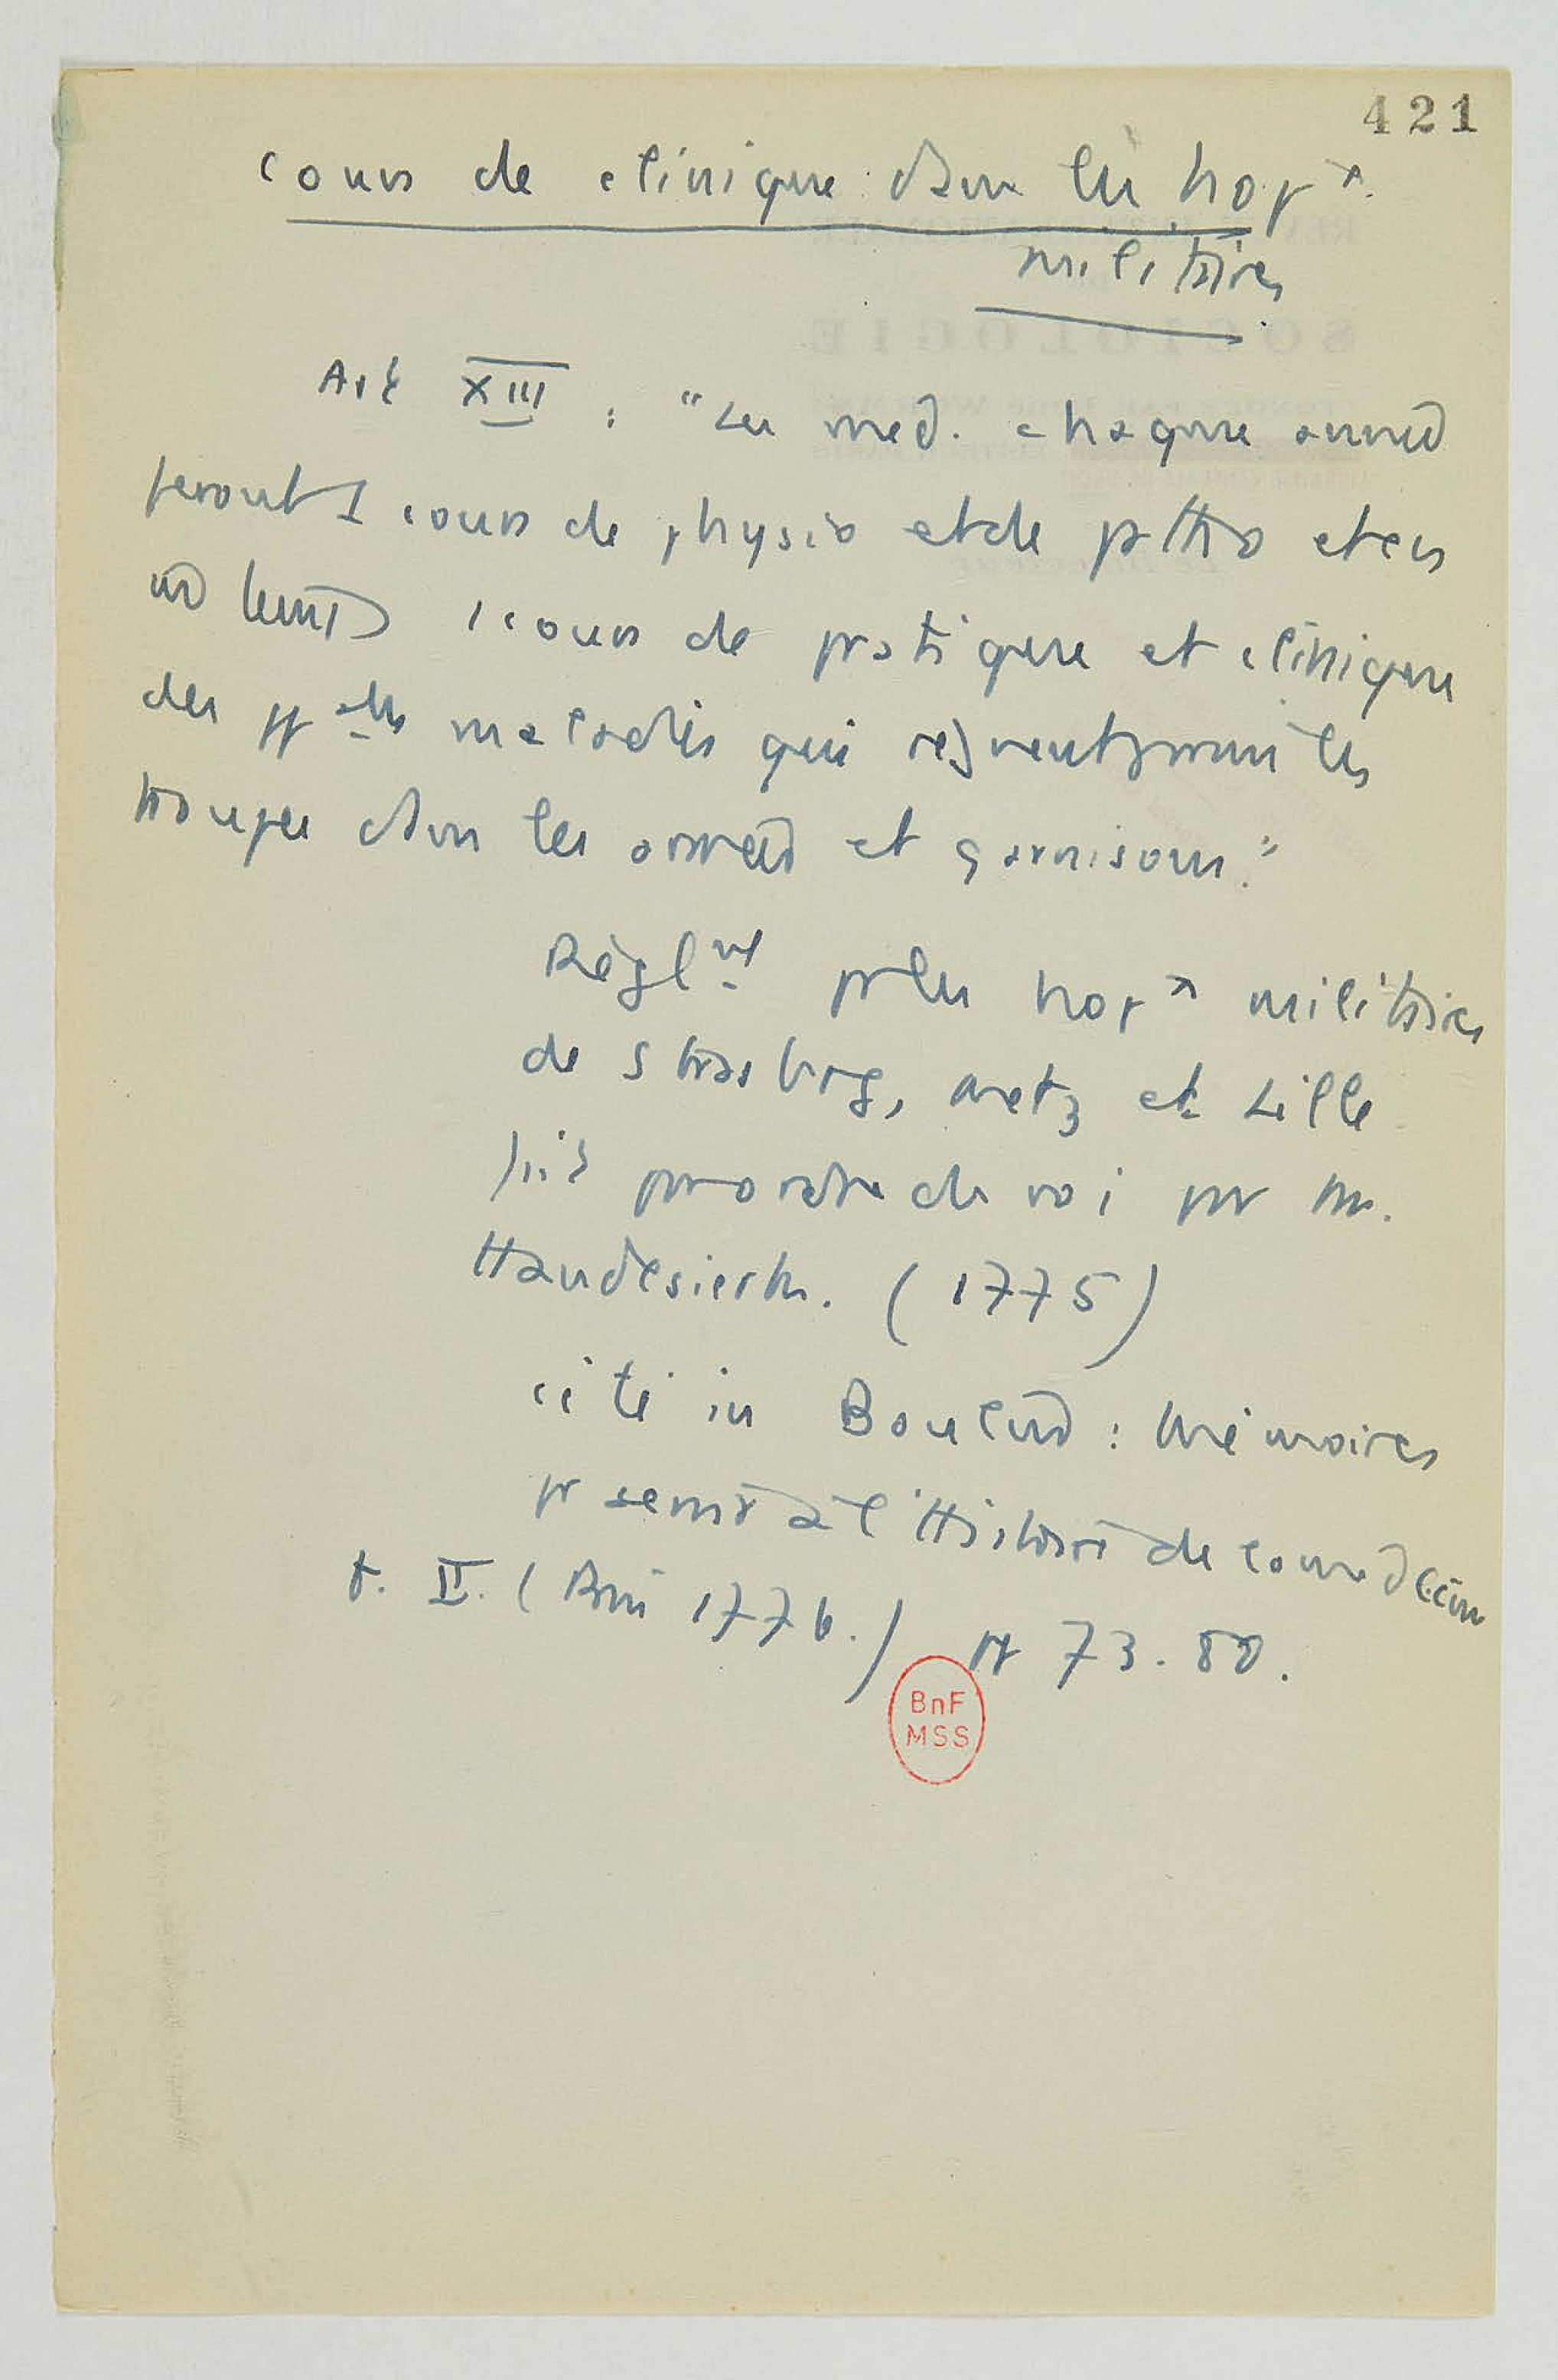 421
Cours de clinique dans les hop^x.
militaires
Art XIII : "Les méd. chaque année
feront 1 cours de physio et de patho et en
même temps 1 cours de pratique et clinique
des pp^ales maladies qui règnent parmi les
troupes dans les armées et garnisons."
Règl^nt pr les hop^x militaires
de Strasbrg, Metz et Lille
fait pr ordre du roi par M.
Haudesierck. (1775)
cité in Boulard : Mémoires
pr servir à l'Histoire de la médecine
t. II. (Paris 1776.) pp 73.80.
BnF
MSS